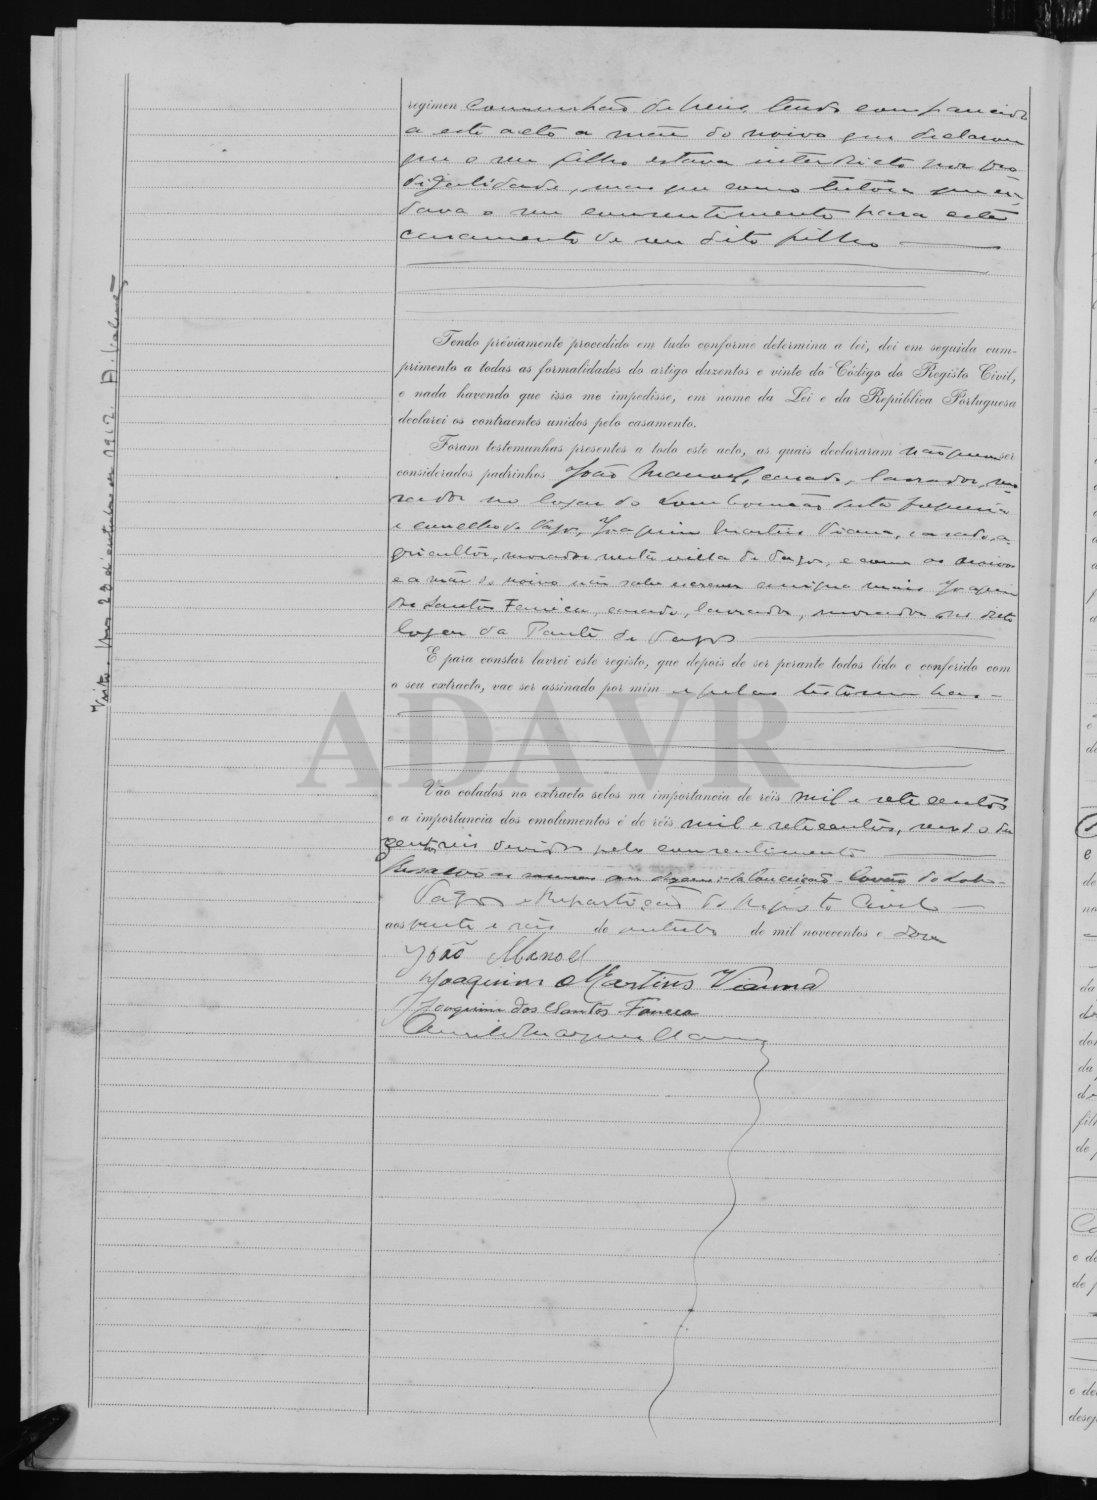 regimen comunhão de bens, tendo comparecido
a este acto a mãe do noivo que declarou
que o seu filho estava interdicto por pro
digalidade, mas que como tutora que é,
dava o seu consentimento para este
casamento de seu dito filho
Tendo préviamente procedido em tudo conforme determina a lei, dei em seguida cum-
primento a todas as formalidades do artigo duzentos e vinte do Código do Registo Civil,
e nada havendo que isso me impedisse, em nome da Lei e da República Portuguesa
declarei os contraentes unidos pelo casamento.
Foram testemunhas presentes a todo este acto, as quais declararam não quererser
considerados padrinhos João Manoel, casado, lavrador, mo
rador no logar do Lombomeão desta freguesia
e concelho de Vagos, Joaquim Martins Viana, casado, a-
gricultôr, morador nesta villa de Vagos, e como os noivos
e a mãe do noivo não sabem escrever assigna mais Joaquim
dos Santos Faneca, casado, lavrador, morador no dito
logar da Ponte de Vagos
E para constar lavrei este registo, que depois de ser perante todos lido e conferido com
o seu extracto, vae ser assinado por mim e pelas testemunhas -
ADAVR
Vão colados no extracto selos na importancia de réis mil e sete centos
e a importancia dos emolumentos é de réis mil e setecentos, sendo du
zentos reis devidos pelo consentimento
Resalvo as da Conceição - Covão do Lobo -
Vagos e Repartição do Registo Civil
aos vinte e seis de outubro de mil novecentos e doze
João Manoel
Joaquim Martins Vianna
Joaquim dos Santos Faneca
Visto. Vagos 28 d'outubro de 1912.